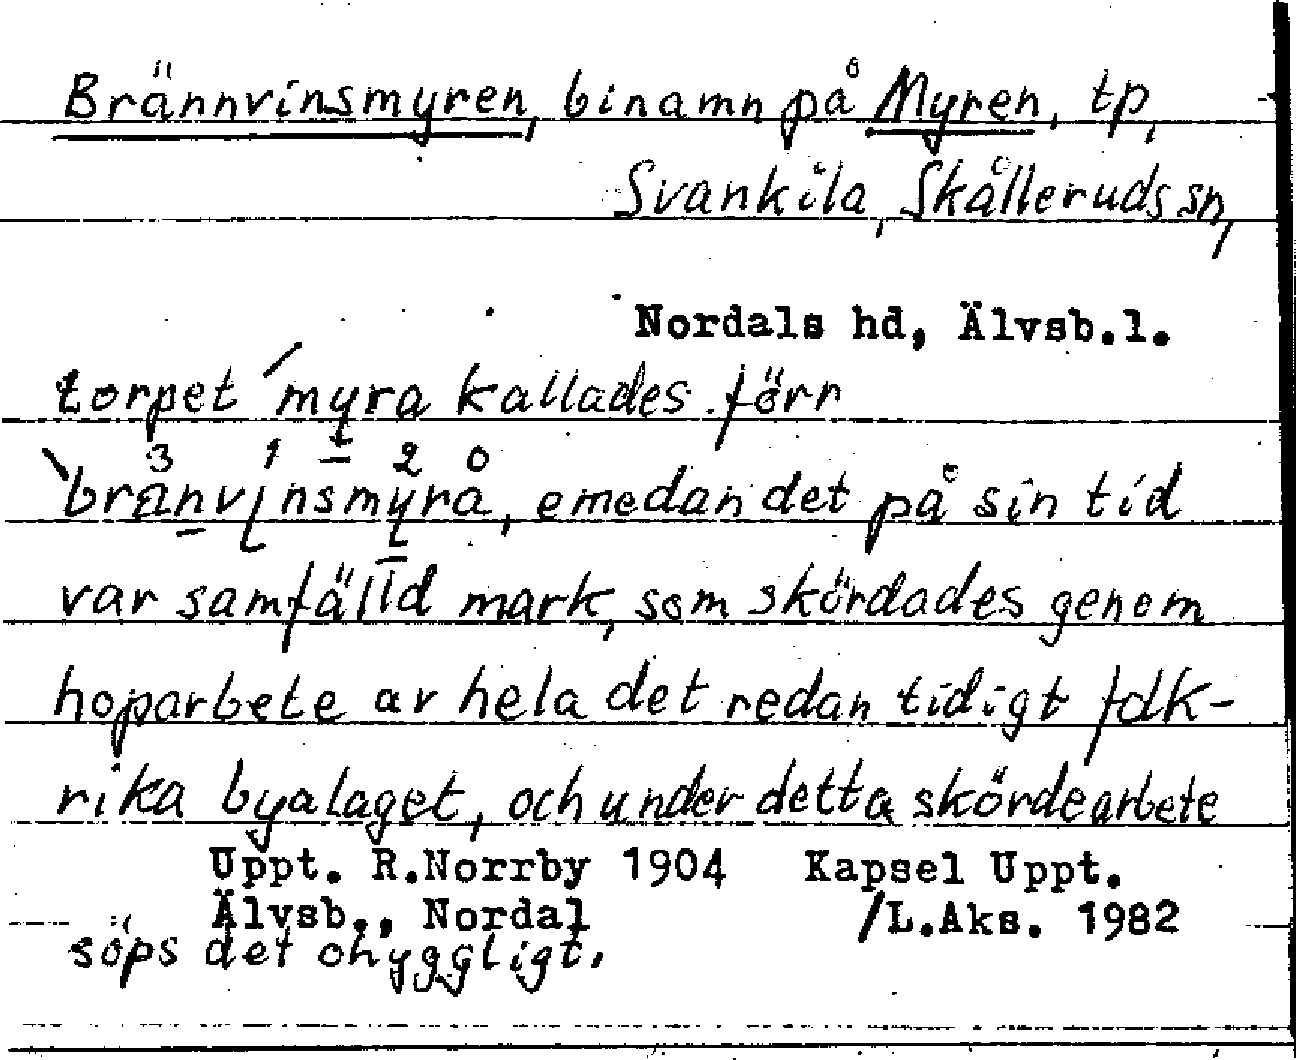 Brännvinsmyren, binamn på Myren, tp,
Svankila, Skålleruds sn,
Nordals hd, Älvsb.l.
torpet ´myra kallades förr
`bränvinsmyra, emedan det på sin tid
var samfälld mark, som skördades genom
hoparbete av hela det redan tidigt folk-
rika byalaget, och under detta skördearbete
Uppt. R.Norrby 1904 Kapsel Uppt.
Älvsb., Nordal /L.Aks. 1982
söps det ohyggligt.